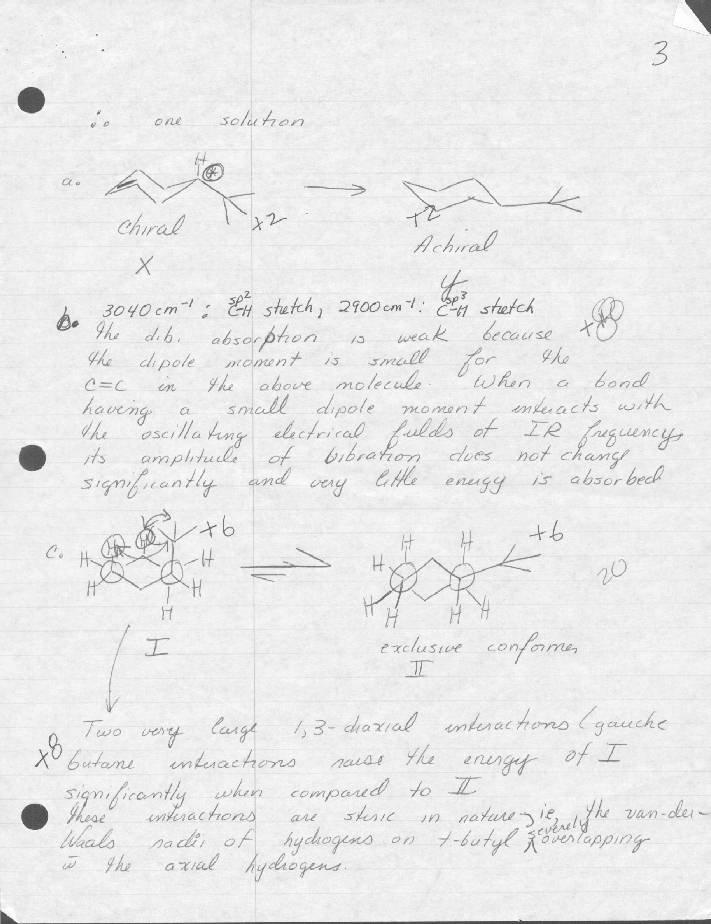 3
∴ one solution
a.
H
*
x2
x2
Chiral
Achiral
X
Y
b. 3040 cm⁻¹ : sp² C-H stretch, 2900 cm⁻¹ : sp³ C-H stretch
The d.b. absorption is weak because
the dipole moment is small for the
C=C in the above molecule. When a bond
having a small dipole moment interacts with
the oscillating electrical fields of IR frequency
its amplitude of bibration does not change
significantly and very little energy is absorbed
c.
H H H H H H H
+6
H H H H H H H
+6
20
I
exclusive conformer
II
Two very large 1,3-diaxial interactions (gauche
x8 butane interactions raise the energy of I
significantly when compared to II
these interactions are steric in nature - ie, the van-der-
Waals radii of hydrogens on t-butyl severely overlapping
w the axial hydrogens.